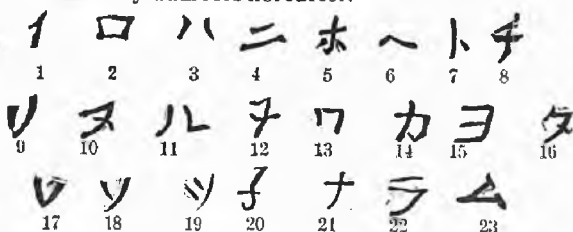 イ ロ ハ ニ ホ ヘ ト チ
1 2 3 4 5 6 7 8
リ ヌ ル ヲ ワ カ ヨ タ
9 10 11 12 13 14 15 16
レ ソ ツ 子 ナ ラ ム
17 18 19 20 21 22 23